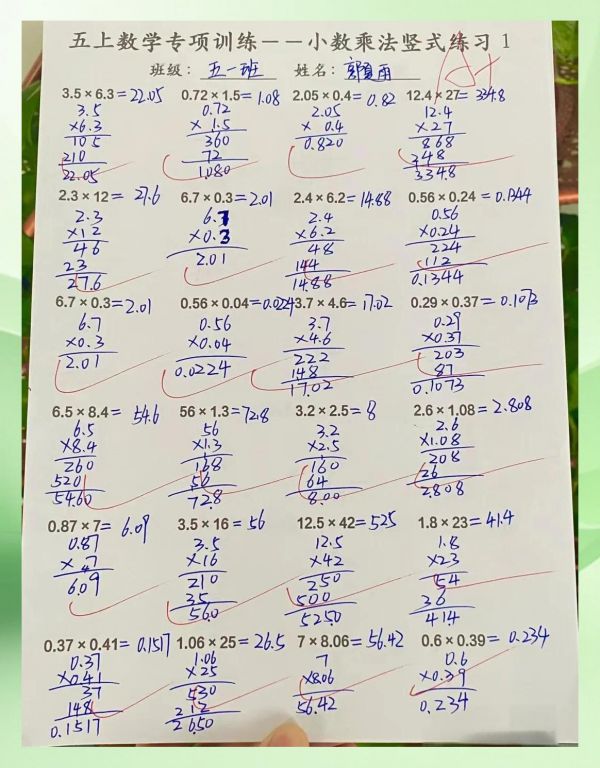 五上数学专项训练——小数乘法竖式练习1
班级：五一班 姓名：郭夏雨
A+
3.5×6.3=22.05 0.72×1.5=1.08 2.05×0.4=0.82 12.4×27=334.8
3.5 0.72 2.05 12.4
×6.3 ×1.5 ×0.4 ×27
105 360 0.820 868
210 72 248
22.05 1.080 334.8
2.3×12=27.6 6.7×0.3=2.01 2.4×6.2=14.88 0.56×0.24=0.1344
2.3 6.7 2.4 0.56
×12 ×0.3 ×6.2 ×0.24
46 2.01 48 224
23 144 112
27.6 14.88 0.1344
6.7×0.3=2.01 0.56×0.04=0.0224 3.7×4.6=17.02 0.29×0.37=0.1073
6.7 0.56 3.7 0.29
×0.3 ×0.04 ×4.6 ×0.37
2.01 0.0224 222 203
148 87
17.02 0.1073
6.5×8.4=54.6 56×1.3=72.8 3.2×2.5=8 2.6×1.08=2.808
6.5 56 3.2 2.6
×8.4 ×1.3 ×2.5 ×1.08
260 168 160 208
520 56 64 26
54.60 72.8 8.00 2.808
0.87×7=6.09 3.5×16=56 12.5×42=525 1.8×23=41.4
0.87 3.5 12.5 1.8
×7 ×16 ×42 ×23
6.09 210 250 54
35 500 36
56.0 525.0 41.4
0.37×0.41=0.1517 1.06×25=26.5 7×8.06=56.42 0.6×0.39=0.234
0.37 1.06 7 0.6
×0.41 ×25 ×8.06 ×0.39
37 530 56.42 0.234
148 212
0.1517 26.50